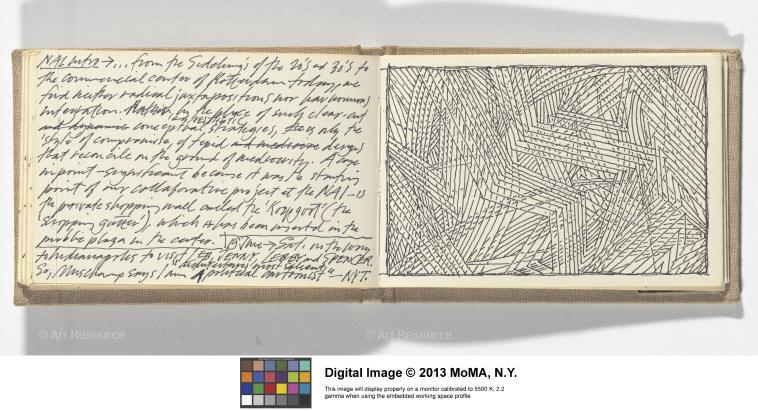 NAI intro → ... from the Siedelungs of the 20's and 30's to
the commercial center of Rotterdam today, we
find neither radical juxtapositions nor harmonious
integration. Rather, in the place of such clear-cut
and dynamic conceptual strategies, there is only the
'style' of compromise, of tepid and mediocre designs
that reconcile on the ground of mediocrity. A case
in point - significant because it was the starting
point of our collaborative project at the NAI - is
the private shopping mall called the 'Koopgoot' (the
'shopping gutter'), which has been inserted in the
public plaza in the center.
to Indianapolis to visit JENNY, and SPENCER.
So, Muschamp says I am "architecture's most salient
political cartoonist" — NYT.
© Art Resource
© Art Resource
© Art Resource
Digital Image © 2013 MoMA, N.Y.
This image will display properly on a monitor calibrated to 5500 K, 2.2
gamma when using the embedded working space profile